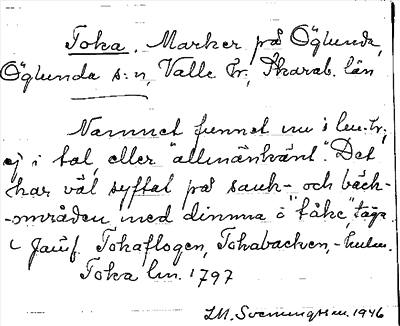 Toka. Marker på Öglunda,
Öglunda s:n, Valle hr, Skarab. län
Namnet funnet nu i
ej i tal, eller "allmänkänt". Det
har väl syftat på sank- och bäck-
-områden med dimma o "tåke", täga.
Jämf. Tokaflogen, Tokabacken, -hulen.
Toka lm. 1797
Sveningsson. 1946